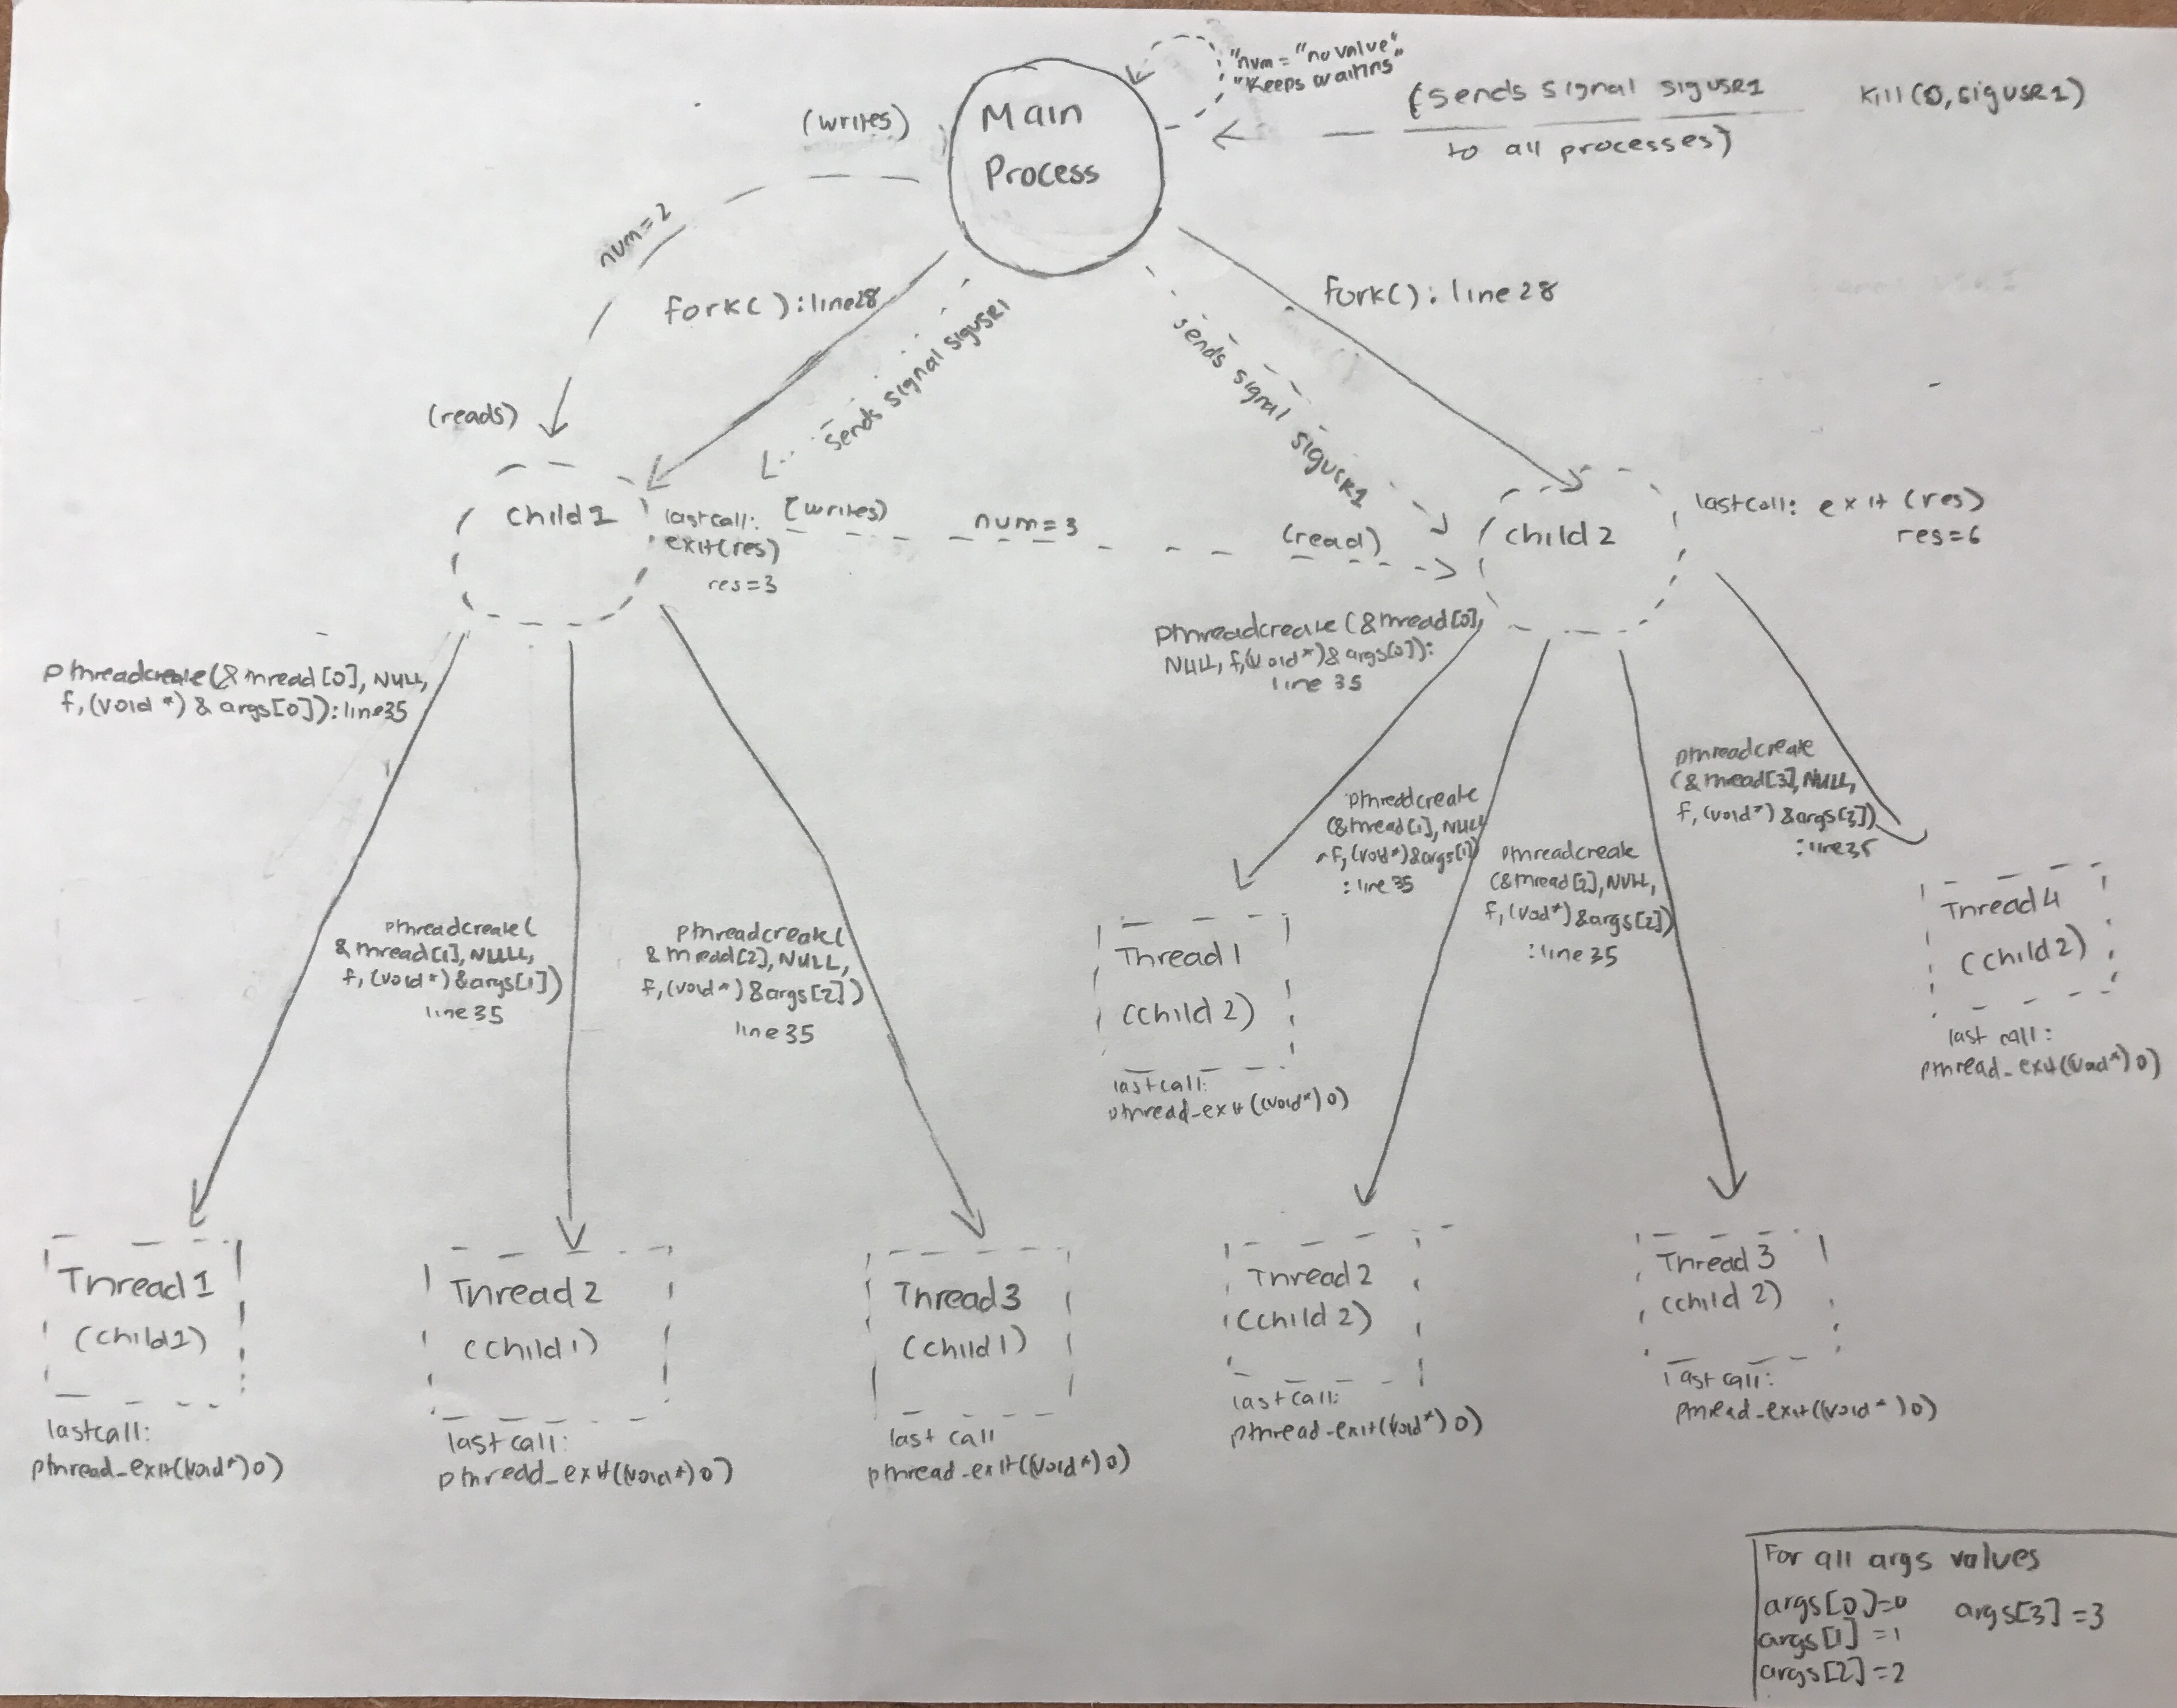 "num = "no value"
"Keeps waiting"
(sends signal sigUSR1
to all processes)
Kill(0, sigUSR1)
(writes)
Main
Process
num=2
fork( ):line28
fork( ): line 28
sends signal sigUSR1
sends signal sigUSR1
(reads)
child1
lastcall:
exit(res)
res=3
(writes)
num=3
(read)
child 2
lastcall: exit (res)
res=6
pthreadcreate(&thread[0], NULL,
f, (void *) & args[0]):line35
pthreadcreate(
&thread[1], NULL,
f, (void*) &args[1])
line35
pthreadcreate(
&thread[2], NULL,
f, (void*) &args[2])
line35
pthreadcreate (&thread[0],
NULL, f,(void*)& args[0]):
line 35
pthreadcreate
(&thread[1], NULL
f, (void*)&args[1])
: line 35
pthreadcreate
(&thread[2], NULL,
f, (void*) &args[2])
:line35
pthreadcreate
(&thread[3], NULL,
f, (void*) &args[3])
:line35
Thread1
(child 2)
lastcall:
pthread_exit((void*)0)
Thread 4
(child 2)
last call:
pthread_exit((void*)0)
Thread1
(child1)
lastcall:
pthread_exit((void*)0)
Thread 2
(child1)
last call:
pthread_exit((void*)0)
Thread3
(child1)
last call
pthread_exit((void*)0)
Thread2
(child 2)
last call:
pthread_exit((void*)0)
Thread 3
(child 2)
last call:
pthread_exit((void*)0)
For all args values
args[0]=0 args[3] =3
args[1] =1
args[2] =2